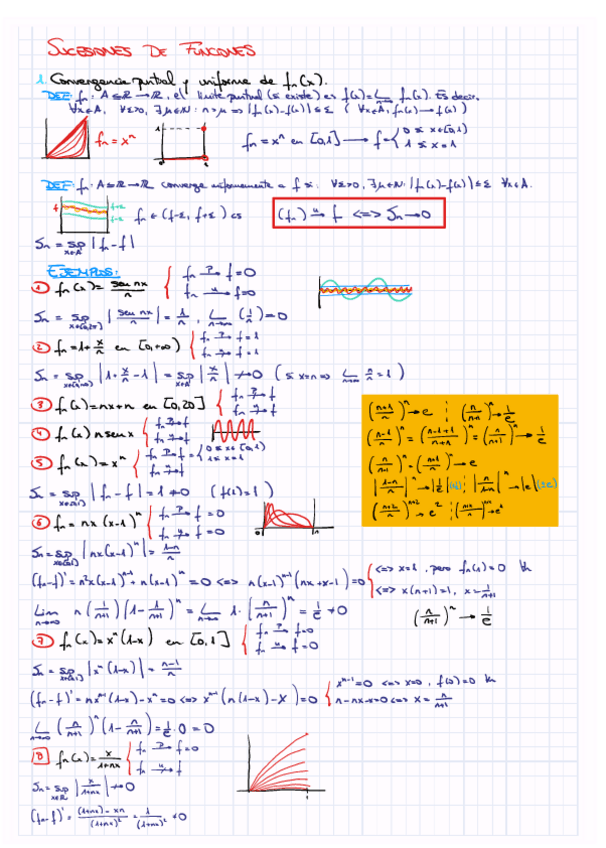 SUCESIONES DE FUNCIONES
1. Convergencia puntual y uniforme de fₙ(x).
DEF: fₙ: A⊆ℝ→ℝ, el límite puntual (si existe) es f(x)=L fₙ(x). Es decir,
∀x∈A, ∀ε>0, ∃μ∈ℕ: n>μ ⇒ |fₙ(x)-f(x)|≤ε (∀x∈A, fₙ(x)→f(x))
fₙ=xⁿ
1
fₙ=xⁿ en [0,1] → f={0 si x∈[0,1)
1 si x=1
DEF: fₙ: A⊆ℝ→ℝ converge uniformemente a f si: ∀ε>0, ∃μ∈ℕ: |fₙ(x)-f(x)|≤ε ∀x∈A.
f+ε
f-ε
fₙ∈(f-ε, f+ε)
(fₙ) →ᵘ f <=> Sₙ→0
Sₙ = sup x∈A |fₙ-f|
EJEMPLOS:
① fₙ(x)= sen nx / n { fₙ →ᵖ f=0
fₙ →ᵘ f=0
Sₙ = sup | sen nx / n | = 1/n, L n→∞ (1/n)=0
② fₙ=1+x/n en [0,+∞) { fₙ →ᵖ f=1
Sₙ = sup |1+x/n-1| = sup |x/n| ↛0 (si x=n ⇒ L n→∞ n/n=1)
③ fₙ(x)=nx+n en [0,20]
④ fₙ(x) n sen x
⑤ fₙ(x)=xⁿ { fₙ →ᵖ f={0 si x∈[0,1)
1 si x=1
Sₙ = sup |fₙ-f|=1≠0 (f(1)=1)
((n+1)/n)ⁿ→e ; (n/(n+1))ⁿ→1/e
(n/(n+1))⁻ⁿ=((n+1)/n)ⁿ→e
⑥ fₙ=nx(x-1)ⁿ { fₙ →ᵖ f=0
Sₙ= sup |nx(x-1)ⁿ|=
(fₙ-f)'=n²x(x-1)ⁿ⁻¹+n(x-1)ⁿ=0 <=> n(x-1)ⁿ⁻¹(nx+x-1)=0 { <=> x=1, pero fₙ(1)=0 ∀n
<=> x(n+1)=1, x=1/(n+1)
Lim n→∞ n(1/(n+1))(1-1/(n+1))ⁿ = L n→∞ 1·(n/(n+1))ⁿ=1/e≠0
(n/(n+1))ⁿ→1/e
⑦ fₙ(x)=xⁿ(1-x) en [0,1] { fₙ →ᵖ f=0
fₙ →ᵘ f=0
Sₙ= sup |xⁿ(1-x)|=
(fₙ-f)'=nxⁿ⁻¹(1-x)-xⁿ=0 <=> xⁿ⁻¹(n(1-x)-x)=0 { xⁿ⁻¹=0 <=> x=0, f(0)=0 ∀n
n-nx-x=0 <=> x=n/(n+1)
L n→∞ (n/(n+1))ⁿ(1-n/(n+1))=1/e·0=0
⑧ fₙ(x)=x/(1+nx) { fₙ →ᵖ f=0
Sₙ= sup x∈ℝ |x/(1+nx)|↛0
(fₙ-f)'=((1+nx)-xn)/(1+nx)²=1/(1+nx)²≠0